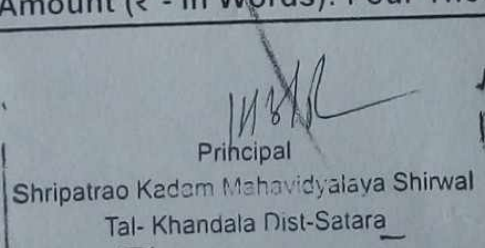 Amount (₹ - in Words): Four Tho
Principal
Shripatrao Kadam Mahavidyalaya Shirwal
Tal- Khandala Dist-Satara